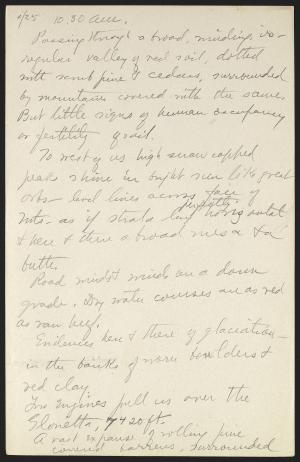 4/25 10.30 am.
Passing through a broad, winding, ir-
regular valley of red soil, dotted
with scrub pine & cedars, surrounded
by mountains covered with the same.
But little signs of human occupancy
or fertility of soil.
To west of us high snow capped
peaks shine in bright sun like great
orbs - level lines across face of
mts. as if strata lay perfectly horizontal
& here & there a broad mesa &
butte.
Road midst winds on a down
grade. Dry water courses are as red
as raw beef.
Evidences here & there of glaciation -
in the banks of worn boulders &
red clay.
Two Engines pull us over the
Glorietta, 7420 ft.
A vast expanse of rolling pine
covered barrens, surrounded